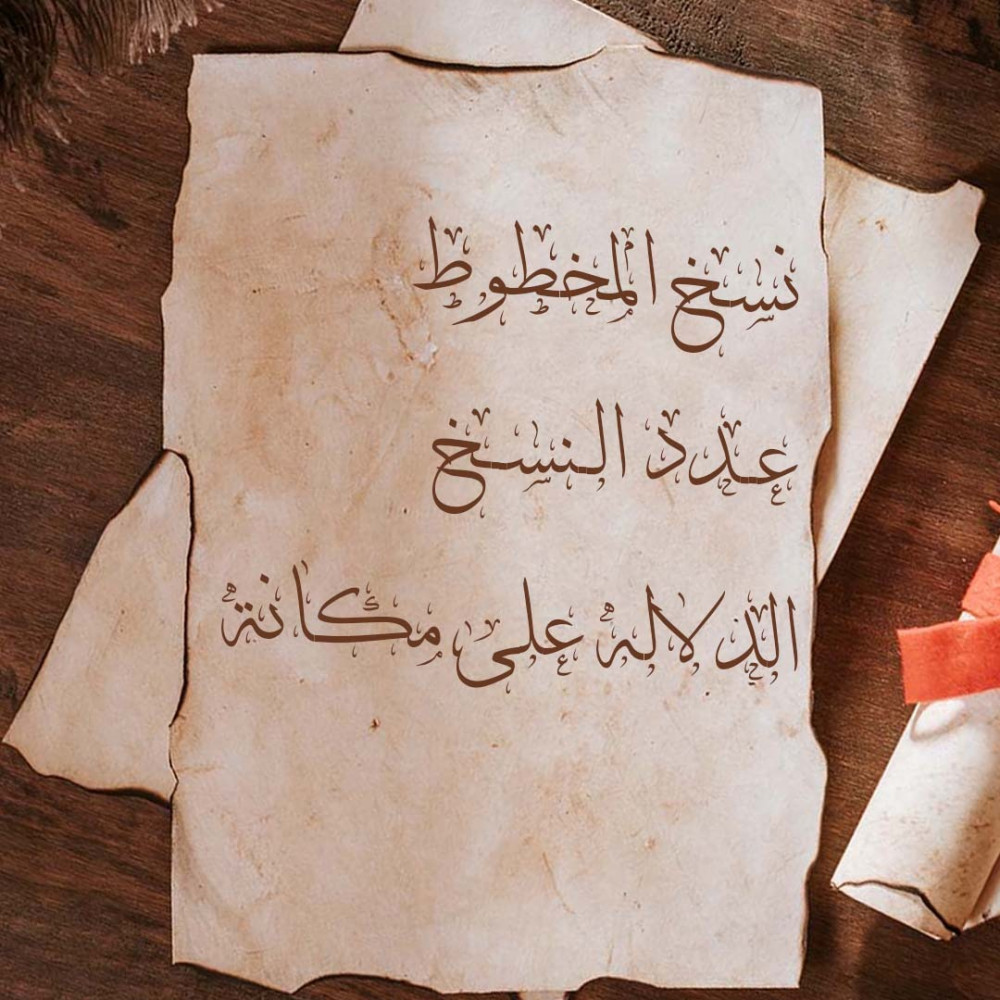 نسخ المخطوط
عدد النسخ
الدلاله على مكانة